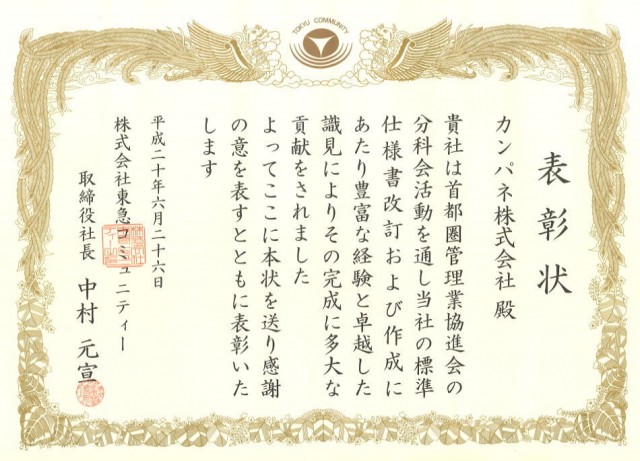 TOKYU COMMUNITY
表彰状
カンパネ株式会社 殿
貴社は首都圏管理業協進会の
分科会活動を通し当社の標準
仕様書改訂および作成に
あたり豊富な経験と卓越した
識見によりその完成に多大な
貢献をされました
よってここに本状を送り感謝
の意を表すとともに表彰いた
します
平成二十年六月二十六日
株式会社東急コミュニティー
取締役社長 中村 元宣